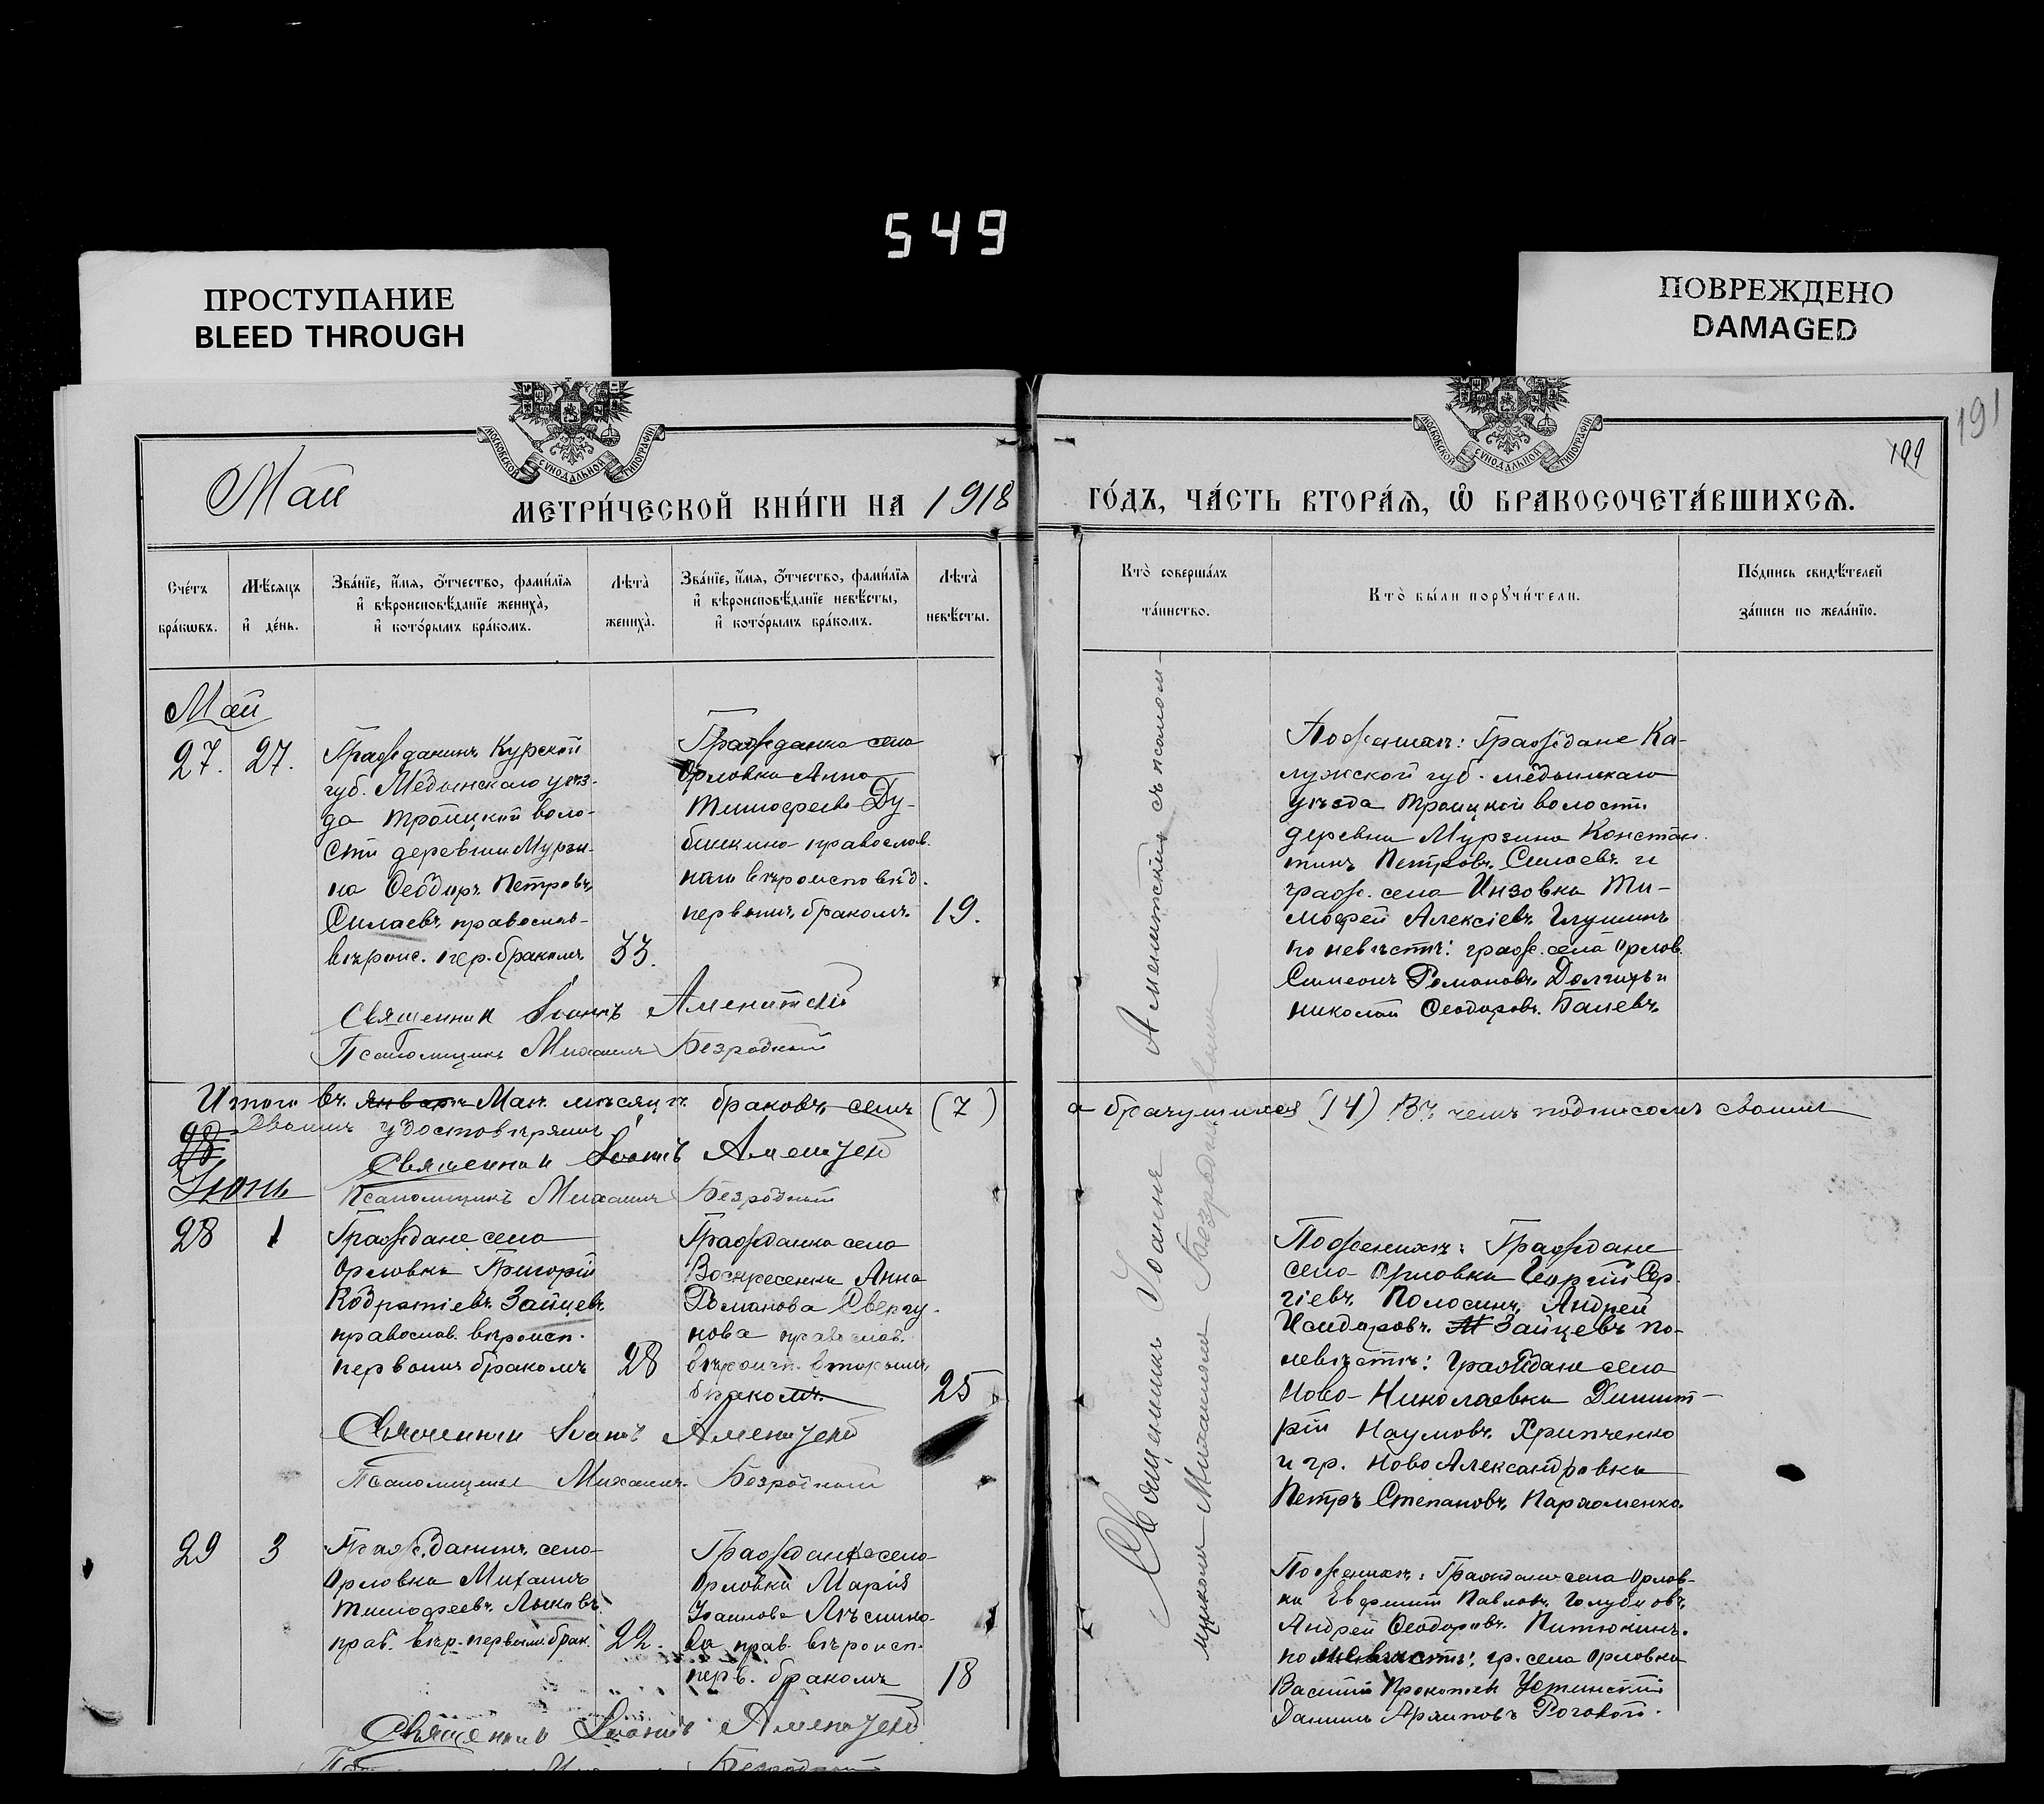 549
ПРОСТУПАНИЕ
BLEED THROUGH
ПОВРЕЖДЕНО
DAMAGED
МОСКОВСКОЙ СѴНОДАЛЬНОЙ ТИПОГРАФІИ
МОСКОВСКОЙ СѴНОДАЛЬНОЙ ТИПОГРАФІИ
191
Май
МЕТРИ́ЧЕСКОЙ КНИ́ГИ НА 1918
ГО́ДЪ, ЧА́СТЬ ВТОРА́Ѧ, Ѽ БРАКОСОЧЕТА́ВШИХСѦ.
Сче́тъ
бра́кѡвъ.
Мѣ́сяцъ
и҆ де́нь.
Зва́нїе, и҆́мя, ѻ҆́тчество, фами́лїя
и҆ вѣроисповѣ́данїе жениха̀,
и҆ кото́рымъ бра́комъ.
Лѣта̀
жениха̀.
Зва́нїе, и҆́мя, ѻ҆́тчество, фами́лїя
и҆ вѣроисповѣ́данїе невѣ́сты,
и҆ кото́рымъ бра́комъ.
Лѣта̀
невѣ́сты.
Кто̀ соверша́лъ
та́инство.
Кто̀ бы́ли порꙋчи́тели.
По́дпись свидѣ́телей
за́писи по жела́нїю.
Май
27. 27.
Гражданинъ Курской
губ. Медынскаго уѣз-
да Троицкой воло-
сти деревни Мурзи-
на Ѳеодоръ Петровъ
Силаевъ православ-
вѣроис. пер. бракомъ
33.
Гражданка села
Орловки Анна
Тимофеева Ду-
бинкина православ.
наго вѣроисповѣд.
первымъ бракомъ.
19.
По женихѣ: Граждане Ка-
лужской губ. Медынскаго
уѣзда Троицкой волости
деревни Мурзина Констан-
тинъ Петровъ Силаевъ и
гражд. села Инзовки Ти-
мофей Алексіевъ Глушинъ
по невѣстѣ: гражд. села Орлов.
Симеонъ Романовъ Долгихъ и
Николай Ѳеодоровъ Балевъ.
Священник Іоаннъ Аменитскій
Псаломщикъ Михаилъ Безродный
Итого въ январѣ Маѣ мѣсяцѣ браковъ семь (7)
а брачущихся (14) Въ чемъ подписомъ своимъ
удостовѣряемъ
28
Священник Іоаннъ
Іюнь
Псаломщикъ Михаилъ Безродный
28 1
Граждане села
Орловки Григорій
Кодратіевъ Зайцевъ
православ. вѣроисп.
первымъ бракомъ
28
Гражданка села
Воскресенки Анна
Романова Свергу-
нова православ.
вѣроисп. вторымъ
бракомъ.
25
По женихѣ: Граждане
села Орловки Георгій Сер-
гіевъ Полосинъ, Андрей
Исидоровъ Зайцевъ по
невѣстѣ: граждане села
Ново-Николаевки Димит-
рій Наумовъ Хрипченко
и гр. Ново Александровки
Петръ Степановъ Пархоменко.
Священник Іоаннъ
Псаломщикъ Михаилъ Безродный
29 3
Гражданинъ села
Орловки Михаилъ
Тимофеевъ Лыковъ
прав. вѣр. первымъ брак.
22.
Гражданка села
Орловки Марія
Іоаннова Лѣсико-
ва прав. вѣроисп.
перв. бракомъ
18
По женихѣ: Граждане села Орлов-
ки Евфимій Павловъ Голубковъ,
Андрей Ѳеодоровъ Питюкинъ.
по невѣстѣ: гр. села Орловки
Василій Прокопіевъ Устинскій
Даніилъ Архиповъ Роговой.
Священник Іоаннъ
Безродный
Священникъ Іоаннъ Аменитскій съ псалом-
щикомъ Михаиломъ Безроднымъ